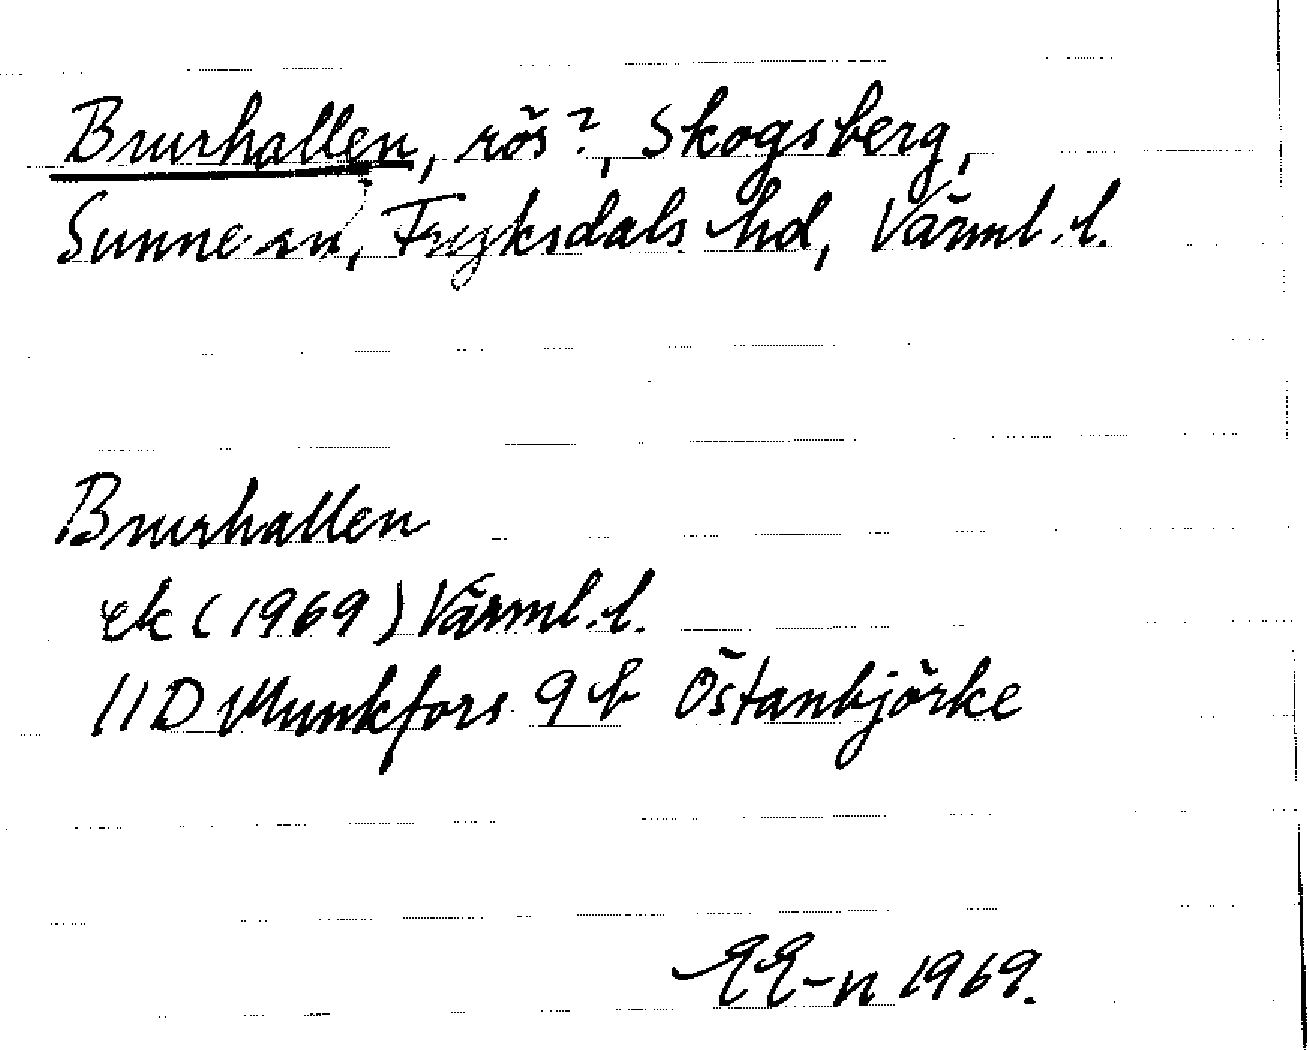 Brurhallen, rös?, Skogsberg,
Sunne sn, Fryksdals hd, Värml. l.
Brurhallen
ek (1969) Värml. l.
11D Munkfors 9 b Östanbjörke
EE-n 1969.